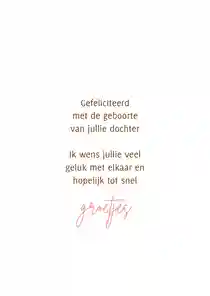 Gefeliciteerd
met de geboorte
van jullie dochter
Ik wens jullie veel
geluk met elkaar en
hopelijk tot snel
groetjes